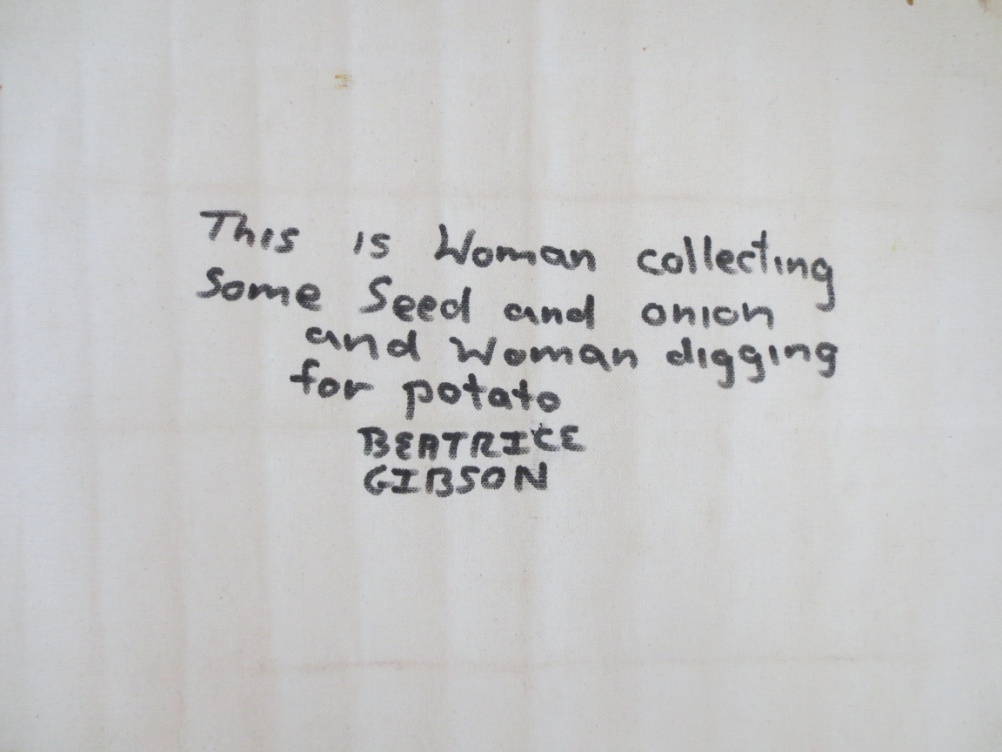 This is Woman collecting
Some Seed and onion
and Woman digging
for potato
BEATRICE
GIBSON